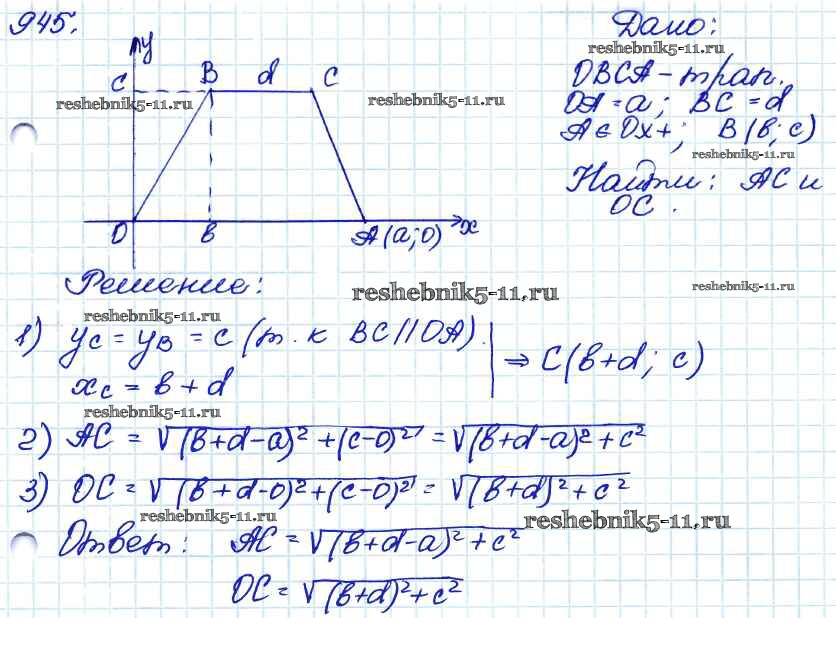 945.
y
C B d C
O в A(a;0) x
Дано:
reshebnik5-11.ru
OBCA - трап.
OA = a; BC = d
A ∈ Ox+; B(в; c)
reshebnik5-11.ru
Найти: AC и
OC.
reshebnik5-11.ru
reshebnik5-11.ru
Решение:
reshebnik5-11.ru
reshebnik5-11.ru
reshebnik5-11.ru
1) yc = yB = c (т.к BC||OA).
xc = в + d
⇒ C(в+d; c)
reshebnik5-11.ru
2) AC = √(в+d-a)² + (c-0)² = √(в+d-a)² + c²
3) OC = √(в+d-0)² + (c-0)² = √(в+d)² + c²
reshebnik5-11.ru
reshebnik5-11.ru
Ответ: AC = √(в+d-a)² + c²
OC = √(в+d)² + c²